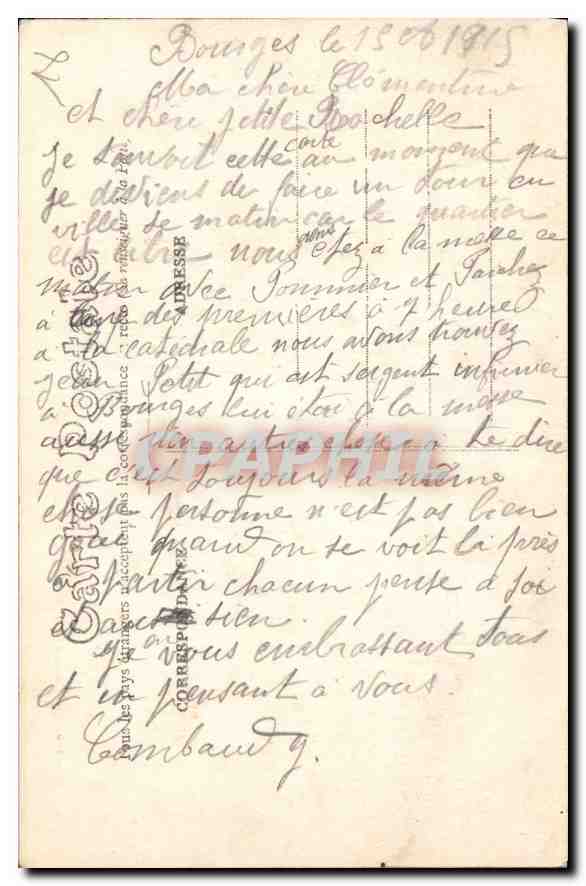 Bourges le 15 1915
Ma chère Clémentine
et chère petite Rochelle
je tenvoit cette carte au moment que
je deviens de faire un tour en
ville se matin car le quartier
est libre nous etez a la messe ce
matin avec Pommier et
à des premières à 7 heures
a la catedrale nous avons trouvez
jean Petit qui est sergent infirmier
a Bourges lui étai à la messe
aussi rien autre chose a te dire
que c'est toujours la même
chose personne n'est pas bien
gai quand on se voit la près
a partir chacun pense a soi
et aux sien
vous embrassant tous
et en pensant à vous.
Combaud y.
Carte Postale
Tous les pays étrangers n'acceptent pas la correspondance au recto (se renseigner à la Poste)
CORRESPONDANCE
ADRESSE
CPAPHIL